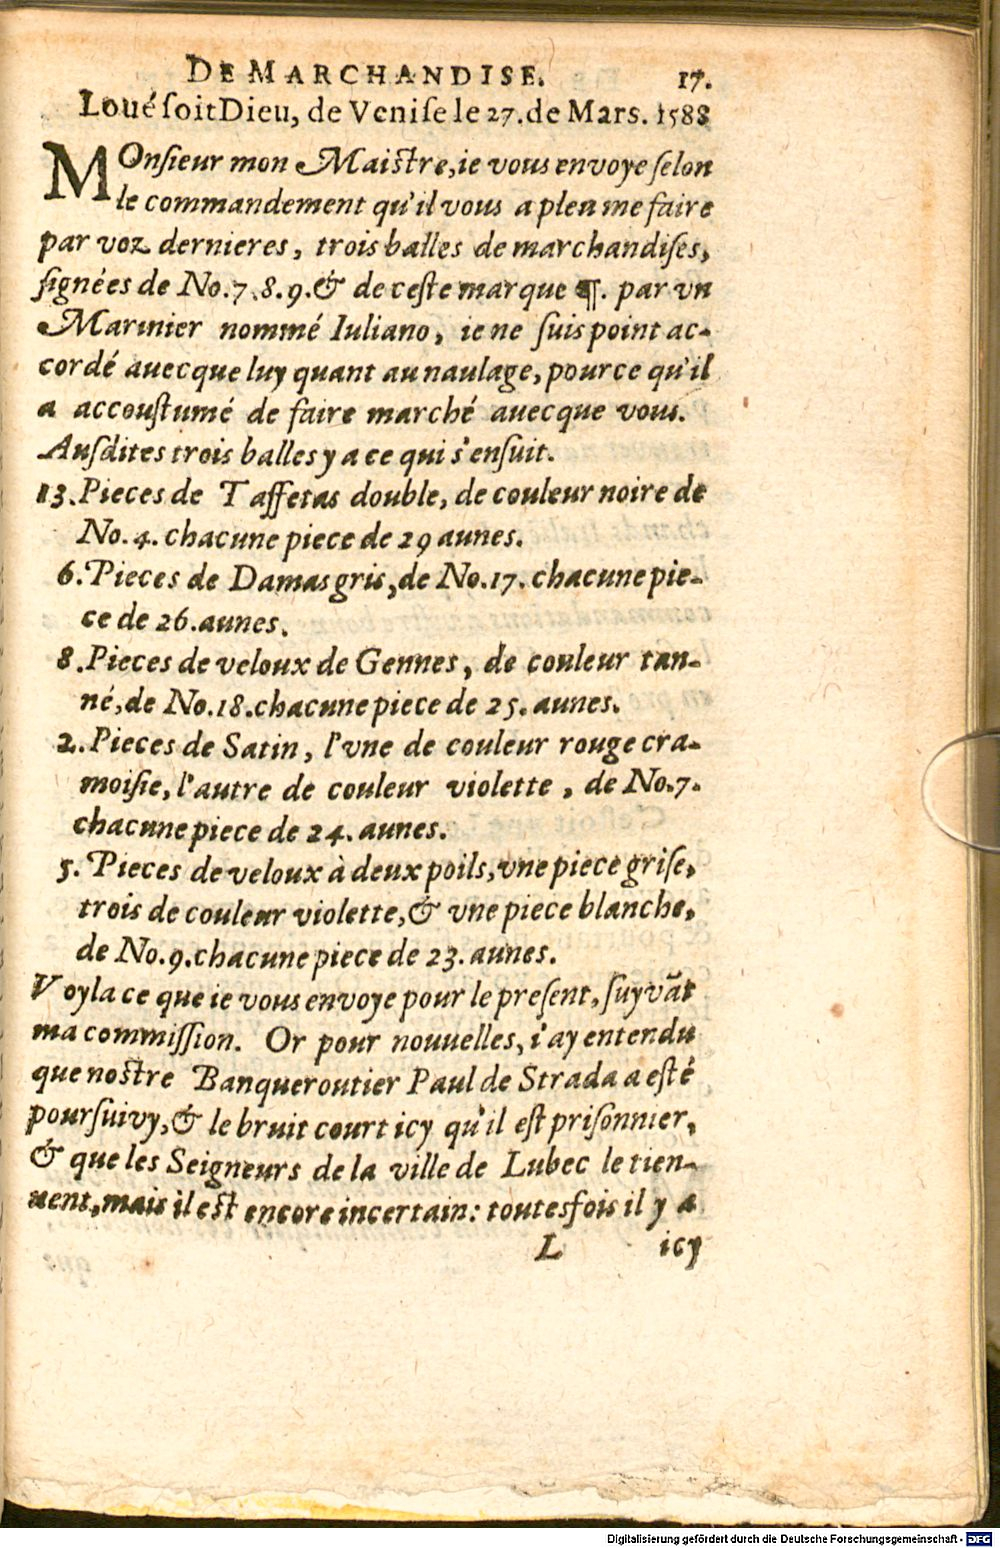 DE MARCHANDISE. 17.
Loué ſoit Dieu, de Veniſe le 27. de Mars. 1588
MOnſieur mon Maiſtre, ie vous envoye ſelon
le commandement qu'il vous a pleu me faire
par voz dernieres, trois balles de marchandiſes,
ſignées de No. 7. 8. 9. & de ceſte marque ¶. par vn
Marinier nommé Iuliano, ie ne ſuis point ac-
cordé auecque luy quant au naulage, pource qu'il
a accouſtumé de faire marché auecque vous.
Auſdites trois balles y a ce qui s'enſuit.
13. Pieces de Taffetas double, de couleur noire de
No. 4. chacune piece de 29 aunes.
6. Pieces de Damas gris, de No. 17. chacune pie-
ce de 26. aunes.
8. Pieces de veloux de Gennes, de couleur tan-
né, de No. 18. chacune piece de 25. aunes.
2. Pieces de Satin, l'vne de couleur rouge cra-
moiſie, l'autre de couleur violette, de No. 7.
chacune piece de 24. aunes.
5. Pieces de veloux à deux poils, vne piece griſe,
trois de couleur violette, & vne piece blanche,
de No. 9. chacune piece de 23. aunes.
Voyla ce que ie vous envoye pour le preſent, ſuyvãt
ma commiſſion. Or pour nouuelles, i'ay entendu
que noſtre Banqueroutier Paul de Strada a eſté
pourſuivy, & le bruit court icy qu'il eſt priſonnier,
& que les Seigneurs de la ville de Lubec le tien-
nent, mais il eſt encore incertain: toutesfois il y a
L icy
Digitalisierung gefördert durch die Deutsche Forschungsgemeinschaft - DFG